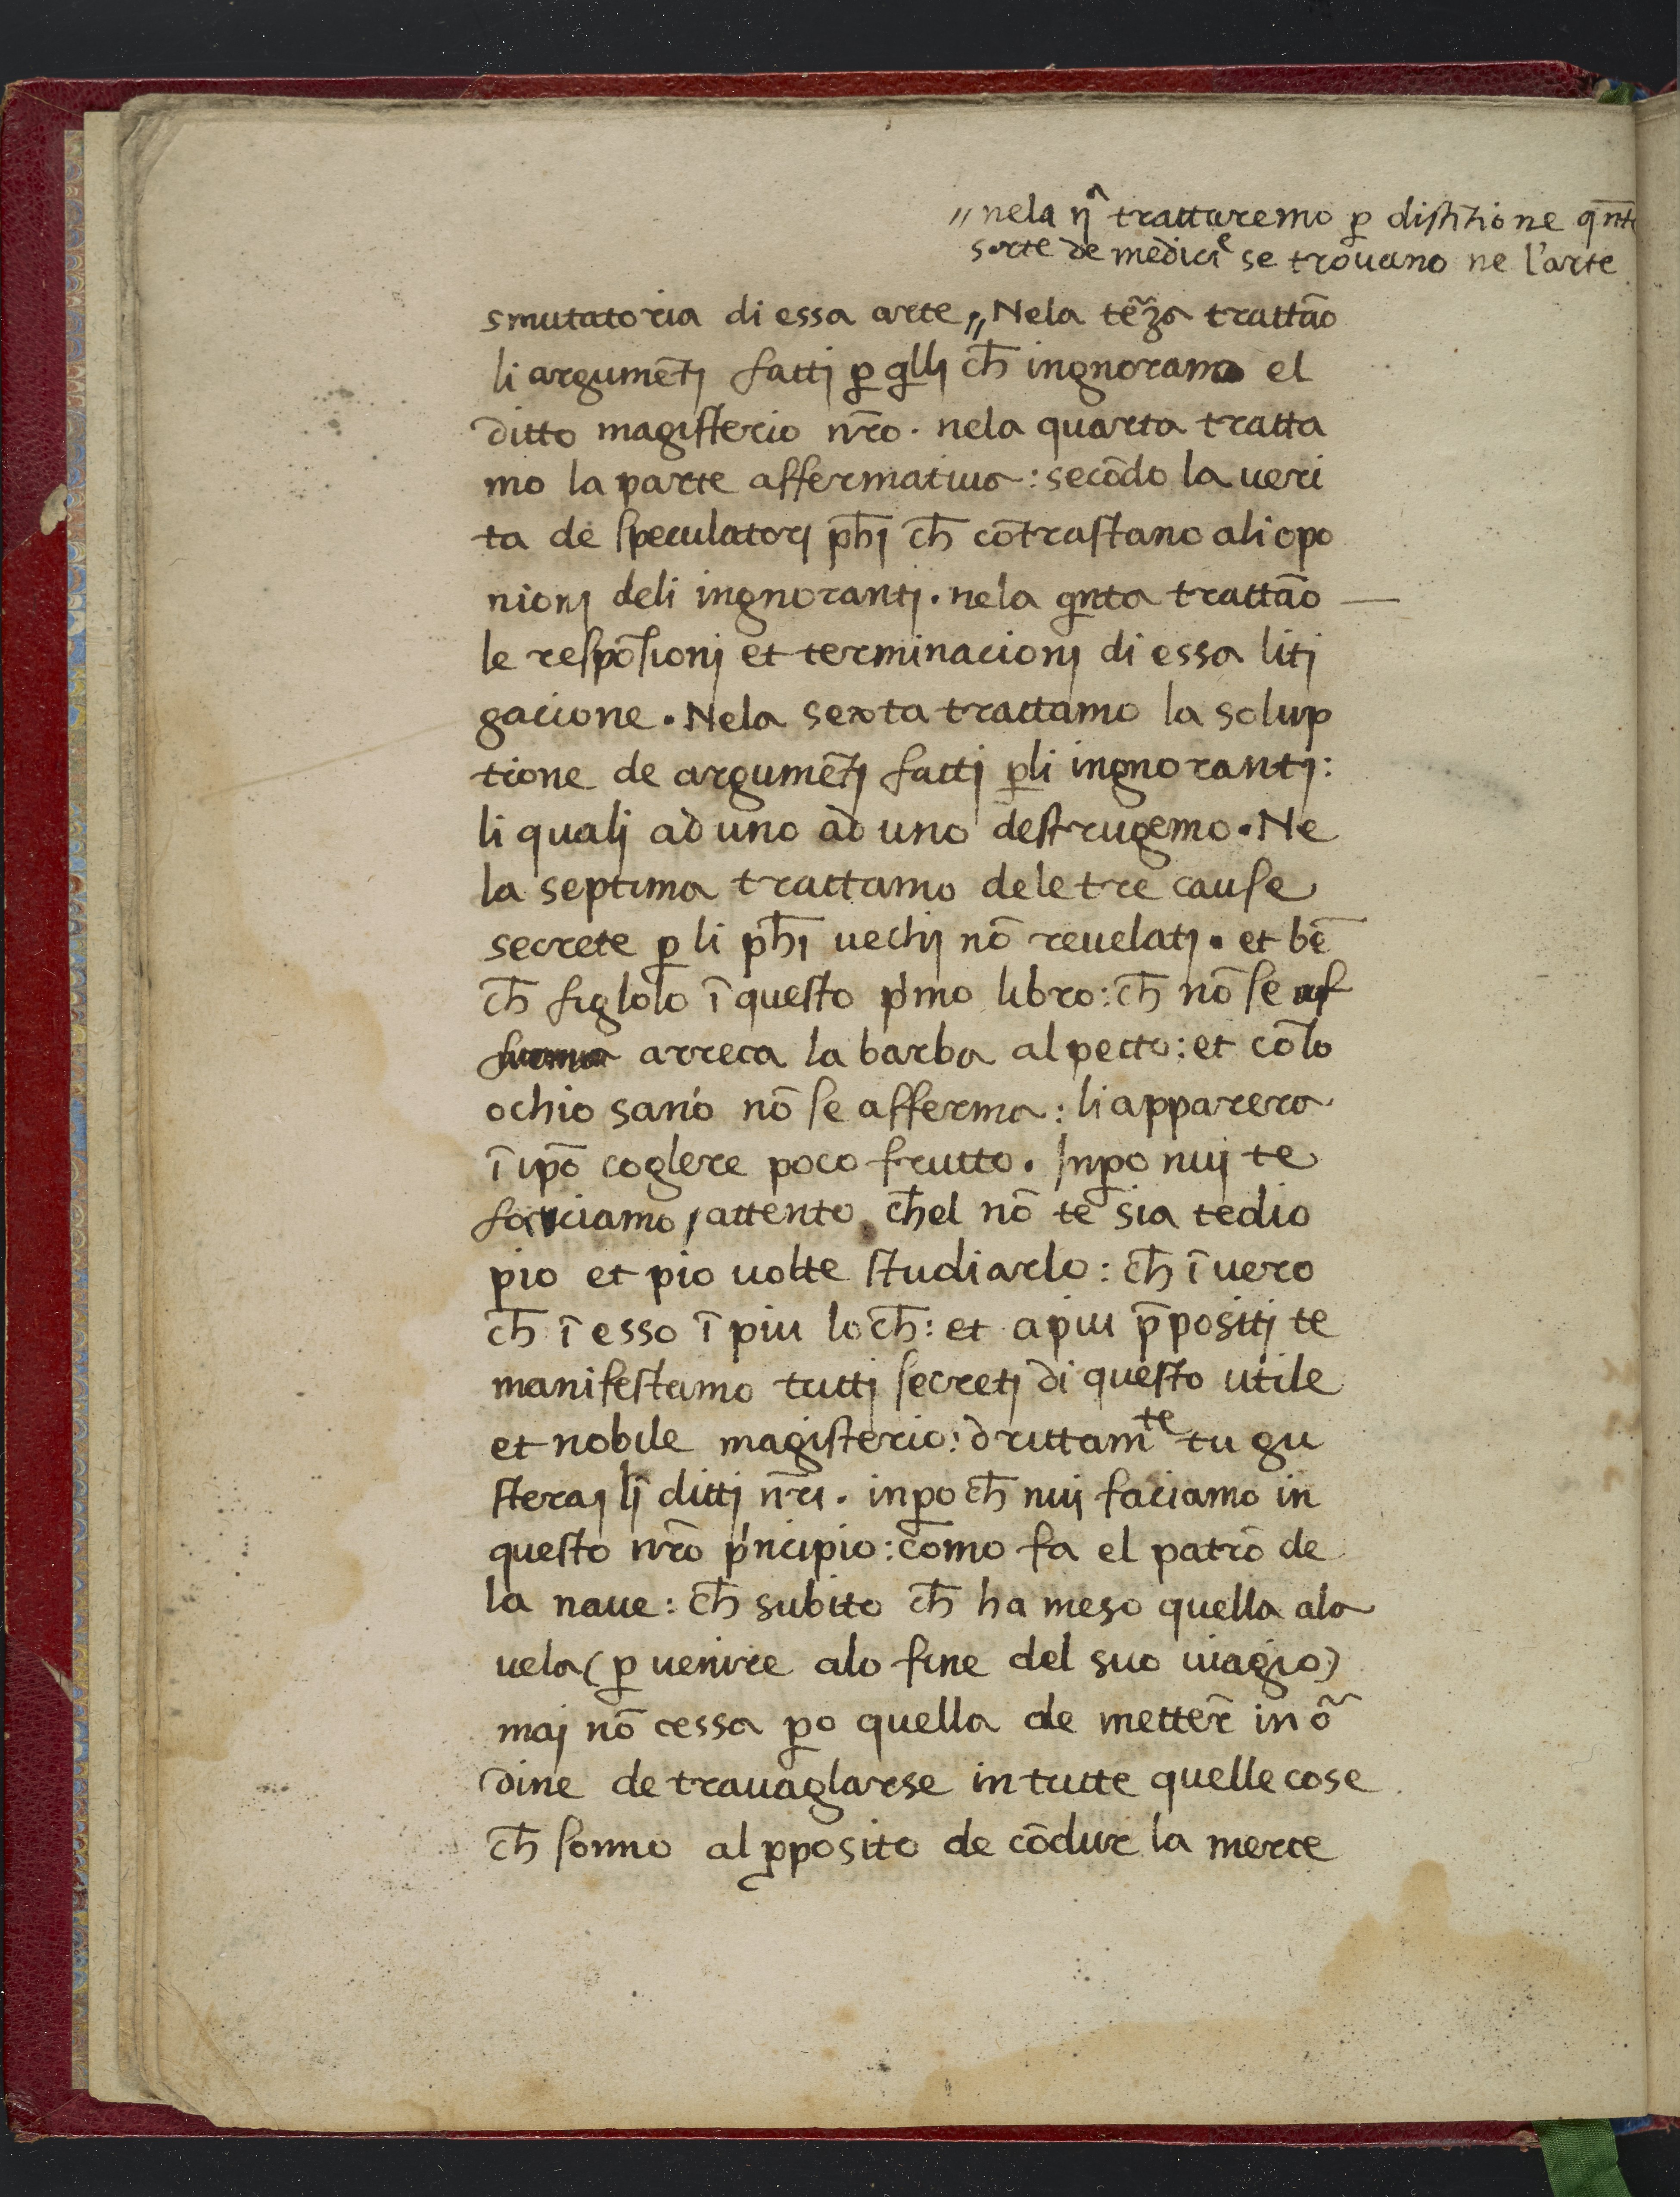 〃nela ɳᷓ trattaremo ꝑ distĩtione qñte
sorte de medicĩe se trouano ne l'arte
smutatoria di essa arte〃 Nela tẽza trattão
li argumẽtj fattj ꝑ qllj ch̄ ingnorano el
ditto magisterio nr̄o. nela quarta tratta
mo la parte affermatiua: secõdo la ueri
ta de speculatorj ph̄j ch̄ cõtrastano ali opo
nionj deli ingnorantj. nela qnta trattão
le respõsionj et terminacionj di essa litj
gacione. Nela sexta trattamo la solup
tione de argumẽtj fattj ꝑli ingnorantj:
li qualj ad uno ad uno destrugemo. Ne
la septima trattamo dele tre cause
secrete ꝑ li ph̄i uechij nõ reuelatj. et bẽ
ch̄ figlolo ĩ questo p'mo libro: ch̄ nõ se
arreca la barba al petto: et cõlo
ochio sano nõ se afferma: li apparera
ĩ ip̄o coglere poco frutto. Inꝑo nuj te
facciamo attento ch̄el nõ te sia tedio
pio et pio uolte studiarlo: ch̄ ĩ uero
ch̄ ĩ esso ĩ piu loch̄: et a piu p̄positj te
manifestamo tuttj secretj di questo utile
et nobile magisterio: drittamte tu gu
steraj lj dittj nr̄i. inꝑoch̄ nuj faciamo in
questo nr̄o p'ncipio: como fa el patrõ de
la naue: ch̄ subito ch̄ ha meso quella ala
uela (ꝑ uenire alo fine del suo uiagio)
maj nõ cessa ꝑo quella de metter̄ in õ
dine de trauaglarse in tutte quelle cose
ch̄ sonno al ꝓposito de cõdur la merce